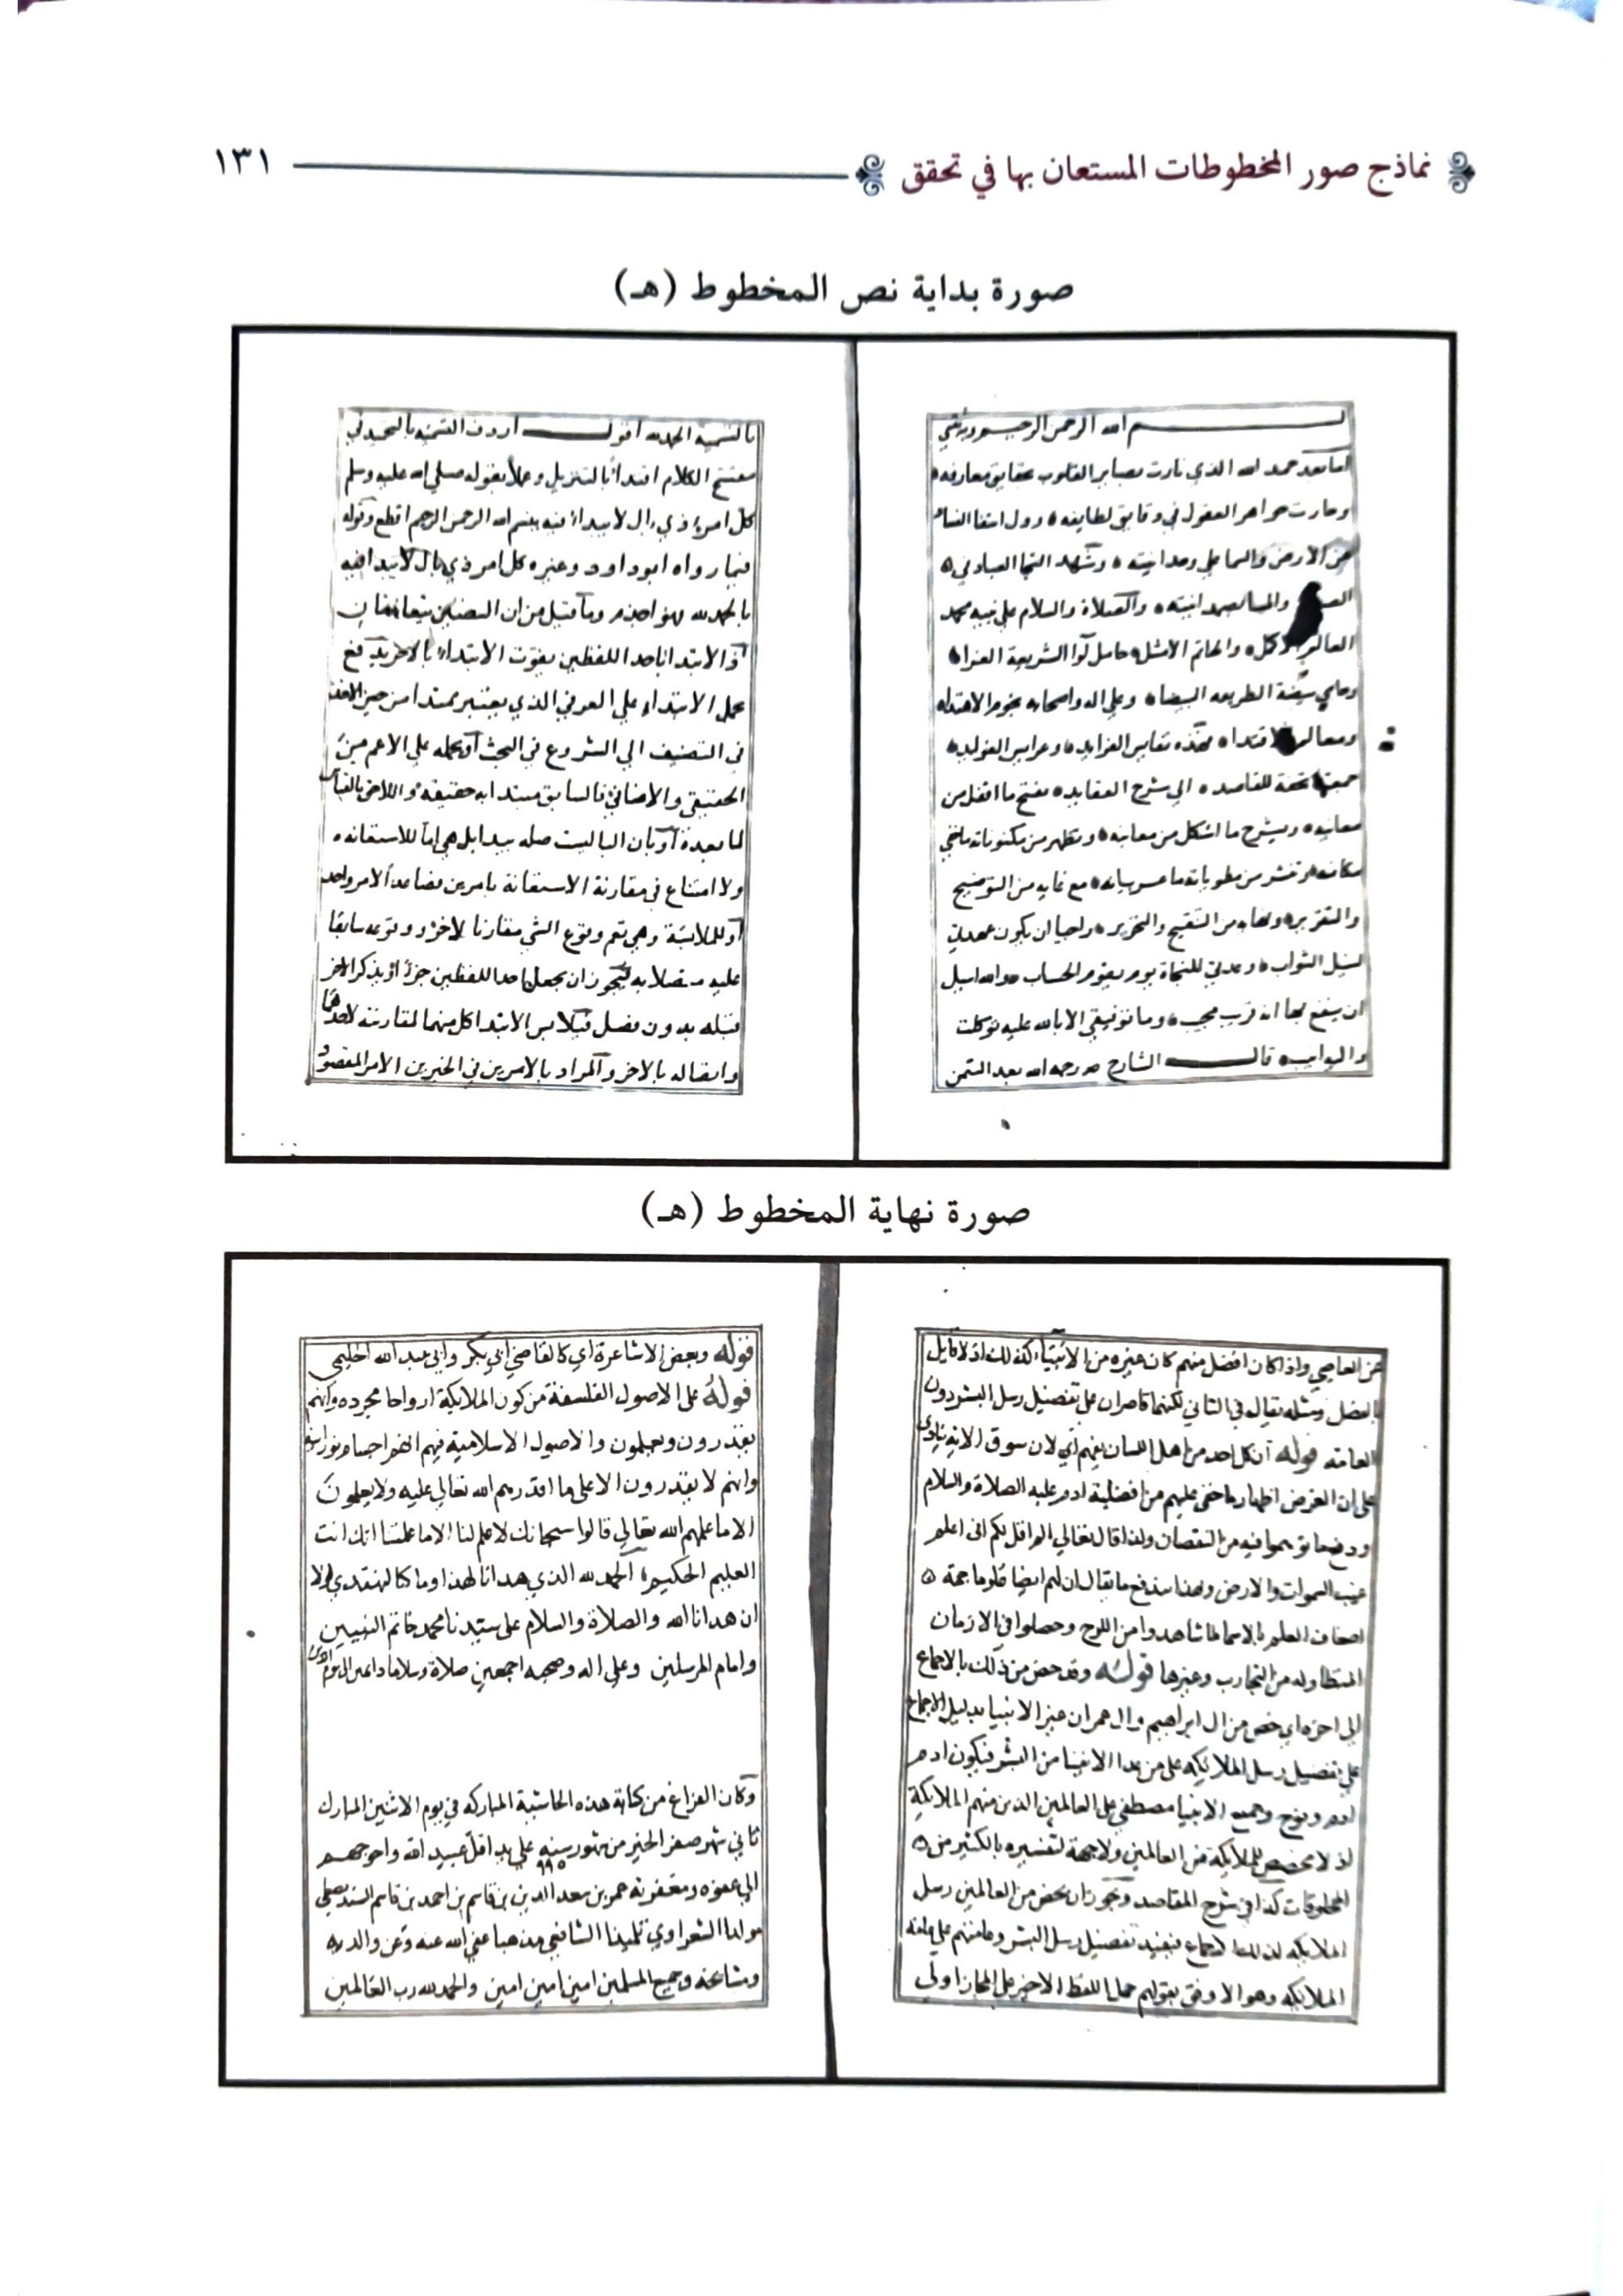 نماذج صور المخطوطات المستعان بها في تحقق ١٣١
صورة بداية نص المخطوط (هـ)
بسم الله الرحمن الرحيم وبه ثقتي
اما بعد حمد الله الذي نارت بصاير القلوب بحقايق معارفه
وحارت جواهر العقول في دقايق لطايفه
عن الارض والسما علي وحدانيته وشهد
والصلاة والسلام علي نبيه محمد
والخاتم الامثل حامل لوا الشريعة الغرا
وعلي اله واصحابه نجوم الاهتداء
فهذه نفايس الفرايد وعرايس الفوايد
جمعتها تحفة للقاصد الي شرح العقايد تفتح ما اقفل من
معانيه وتشرح ما اشكل من معانيه وتظهر من مكنوناته ما خفي
مكانه وتنشر من مطوياته ما حسن بيانه مع غاية من التوضيح
والتقرير ونهاية من التنقيح والتحرير راجيا ان يكون عمدتي
لنيل الثواب وعدتي للنجاة يوم يقوم الحساب والله اسيل
ان ينفع بها انه قريب مجيب وما توفيقي الا بالله عليه توكلت
واليه انيب قال الشارح رحمه الله بعد التيمن
بالتسمية الحمد لله اقول اردف التسمية بالتحميد في
مفتتح الكلام اقتداءً بالتنزيل وعملاً بقوله صلي الله عليه وسلم
كل امرء ذي بال لا يبداء فيه ببسم الله الرحمن الرحيم اقطع وقوله
فيما رواه ابو داود وغيره كل امر ذي بال لا يبدا فيه
بالحمد لله فهو اجذم وما قيل من ان النصين يتعارضان
اذ الابتدا باحد اللفظين يفوت الابتداء بالاخر يدفع
بحمل الابتداء علي العرفي الذي يعتبر ممتدا من حين الاخذ
في التصنيف الي الشروع في البحث او بحمله علي الاعم من
الحقيقي والاضافي فالسابق مبتدا به حقيقة واللاحق بالقياس
لما بعده او بان البا ليست صله يبدا بل هي اما للاستعانه
ولا امتناع في مقارنة الاستعانة بامرين فصاعداً لامر واحد
او للملابسة وهي تعم وقوع الشي مقارنا لاخر ووقوعه سابقا
عليه متصلا به فيجوز ان يجعل احد اللفظين جزءً او يذكر الاخر
قبله بدون فصل فيلابس الابتدا كل منهما لمقارنته لاحدهما
واتصاله بالاخر والمراد بالامرين في الخبرين الامر المقصود
صورة نهاية المخطوط (هـ)
عن العاصي واذا كان افضل منهم كان غيره من الانبيا كذلك اذ لا قايل
بالفصل ومثله يقال في الثاني لكنهما قاصران على تفضيل رسل البشر دون
العامة قوله ان كل احد من اهل اللسان يفهم اي لان سوق الاية ينادي
على ان الغرض اظهار ما خفي عليهم من افضلية ادم عليه الصلاة والسلام
ودفع ما توهموا فيه من النقصان ولذا قال تعالي الم اقل لكم اني اعلم
غيب السموات والارض وبهذا يندفع ما يقال ان لهم ايضا علوما جمة
اضعاف العلم بالاسما لما شاهدوا من اللوح وحصلوا في الازمان
المتطاوله من التجارب وغيرها قوله وقد خص من ذلك بالاجماع
الي اخره اي خص من ال ابراهيم وال عمران غير الانبيا بدليل الاجماع
على تفضيل رسل الملايكه على من عدا الانبيا من البشر فيكون ادم
ونوح وجميع الانبيا مصطفى على العالمين الذين منهم الملايكة
اذ لا مخصص للملايكة من العالمين ولا جهة لتفسيره بالكثير من
المخلوقات كذا في شرح المقاصد ويجوز ان يخص من العالمين رسل
الملايكه لذلك الاجماع فيفيد تفضيل رسل البشر وعامتهم على عامة
الملايكه وهو الاوفق بقولهم حمل اللفظ الاخير على المجاز اولي
قوله وبعض الاشاعرة اي كالقاضي ابي بكر وابي عبد الله الحليمي
قوله على الاصول الفلسفة من كون الملايكة ارواحا مجرده وانهم
يقدرون ويعلمون والاصول الاسلامية فيهم انهم اجسام نورانية
وانهم لا يقدرون الا على ما اقدرهم الله تعالي عليه ولا يعلمون
الا ما علمهم الله تعالي قالوا سبحانك لا علم لنا الا ما علمتنا انك انت
العليم الحكيم الحمد لله الذي هدانا لهذا وما كنا لنهتدي لولا
ان هدانا الله والصلاة والسلام على سيدنا محمد خاتم النبيين
وامام المرسلين وعلى اله وصحبه اجمعين صلاة وسلاما دايمين الي يوم الدين
وكان الفراغ من كتابة هذه الحاشية المباركه في يوم الاثنين المبارك
ثاني شهر صفر الخير من شهور سنه ٩٩٥ على يد اقل عبيد الله واحوجهم
الي عفوه ومغفرته عمر بن سعد الدين بن قاسم بن احمد بن قاسم
مولدا الشعراوي تلميذا الشافعي مذهبا عفي الله عنه وعن والديه
ومشايخه وجميع المسلمين امين امين امين والحمد لله رب العالمين